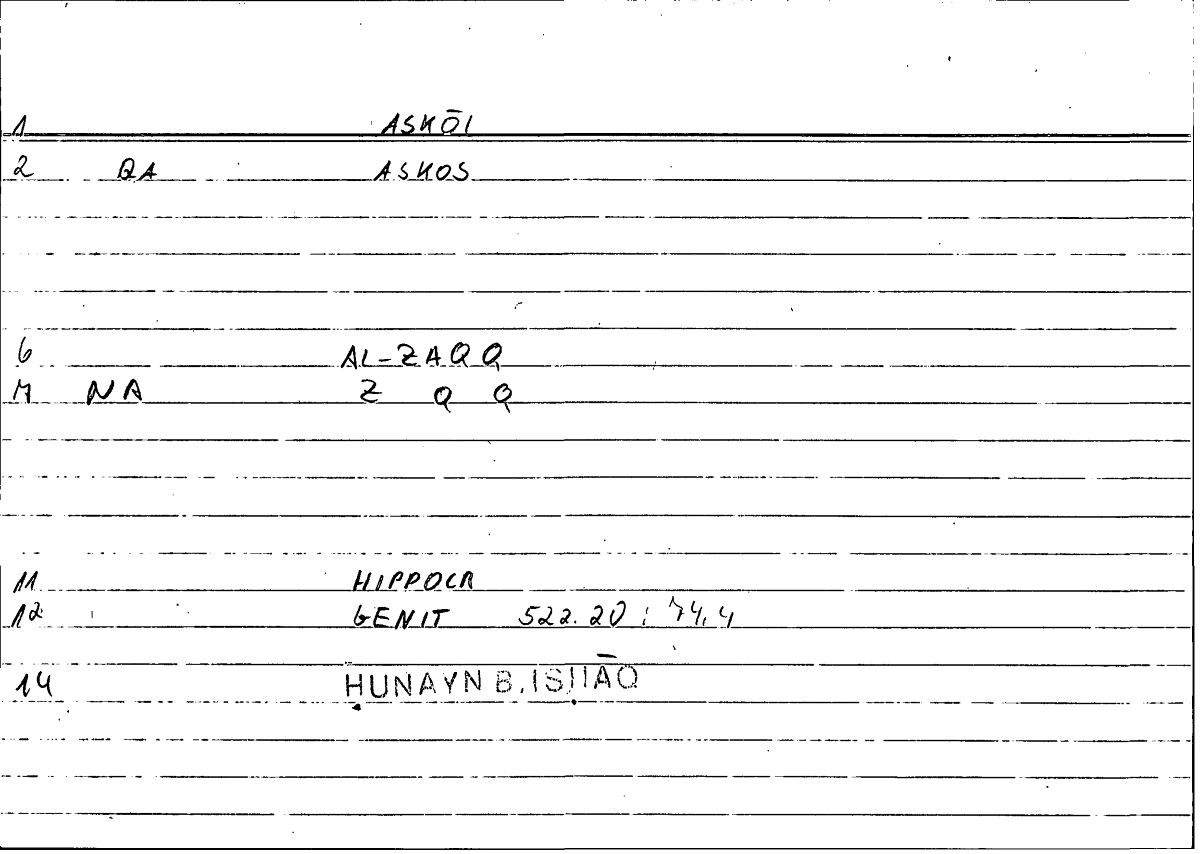 1 ASKŌI
2 QA ASKOS
6 AL-ZAQQ
7 NA Z Q Q
11 HIPPOCR
12 GENIT 522.20 ; 74,4
14 ḤUNAYN B. ISḤĀQ